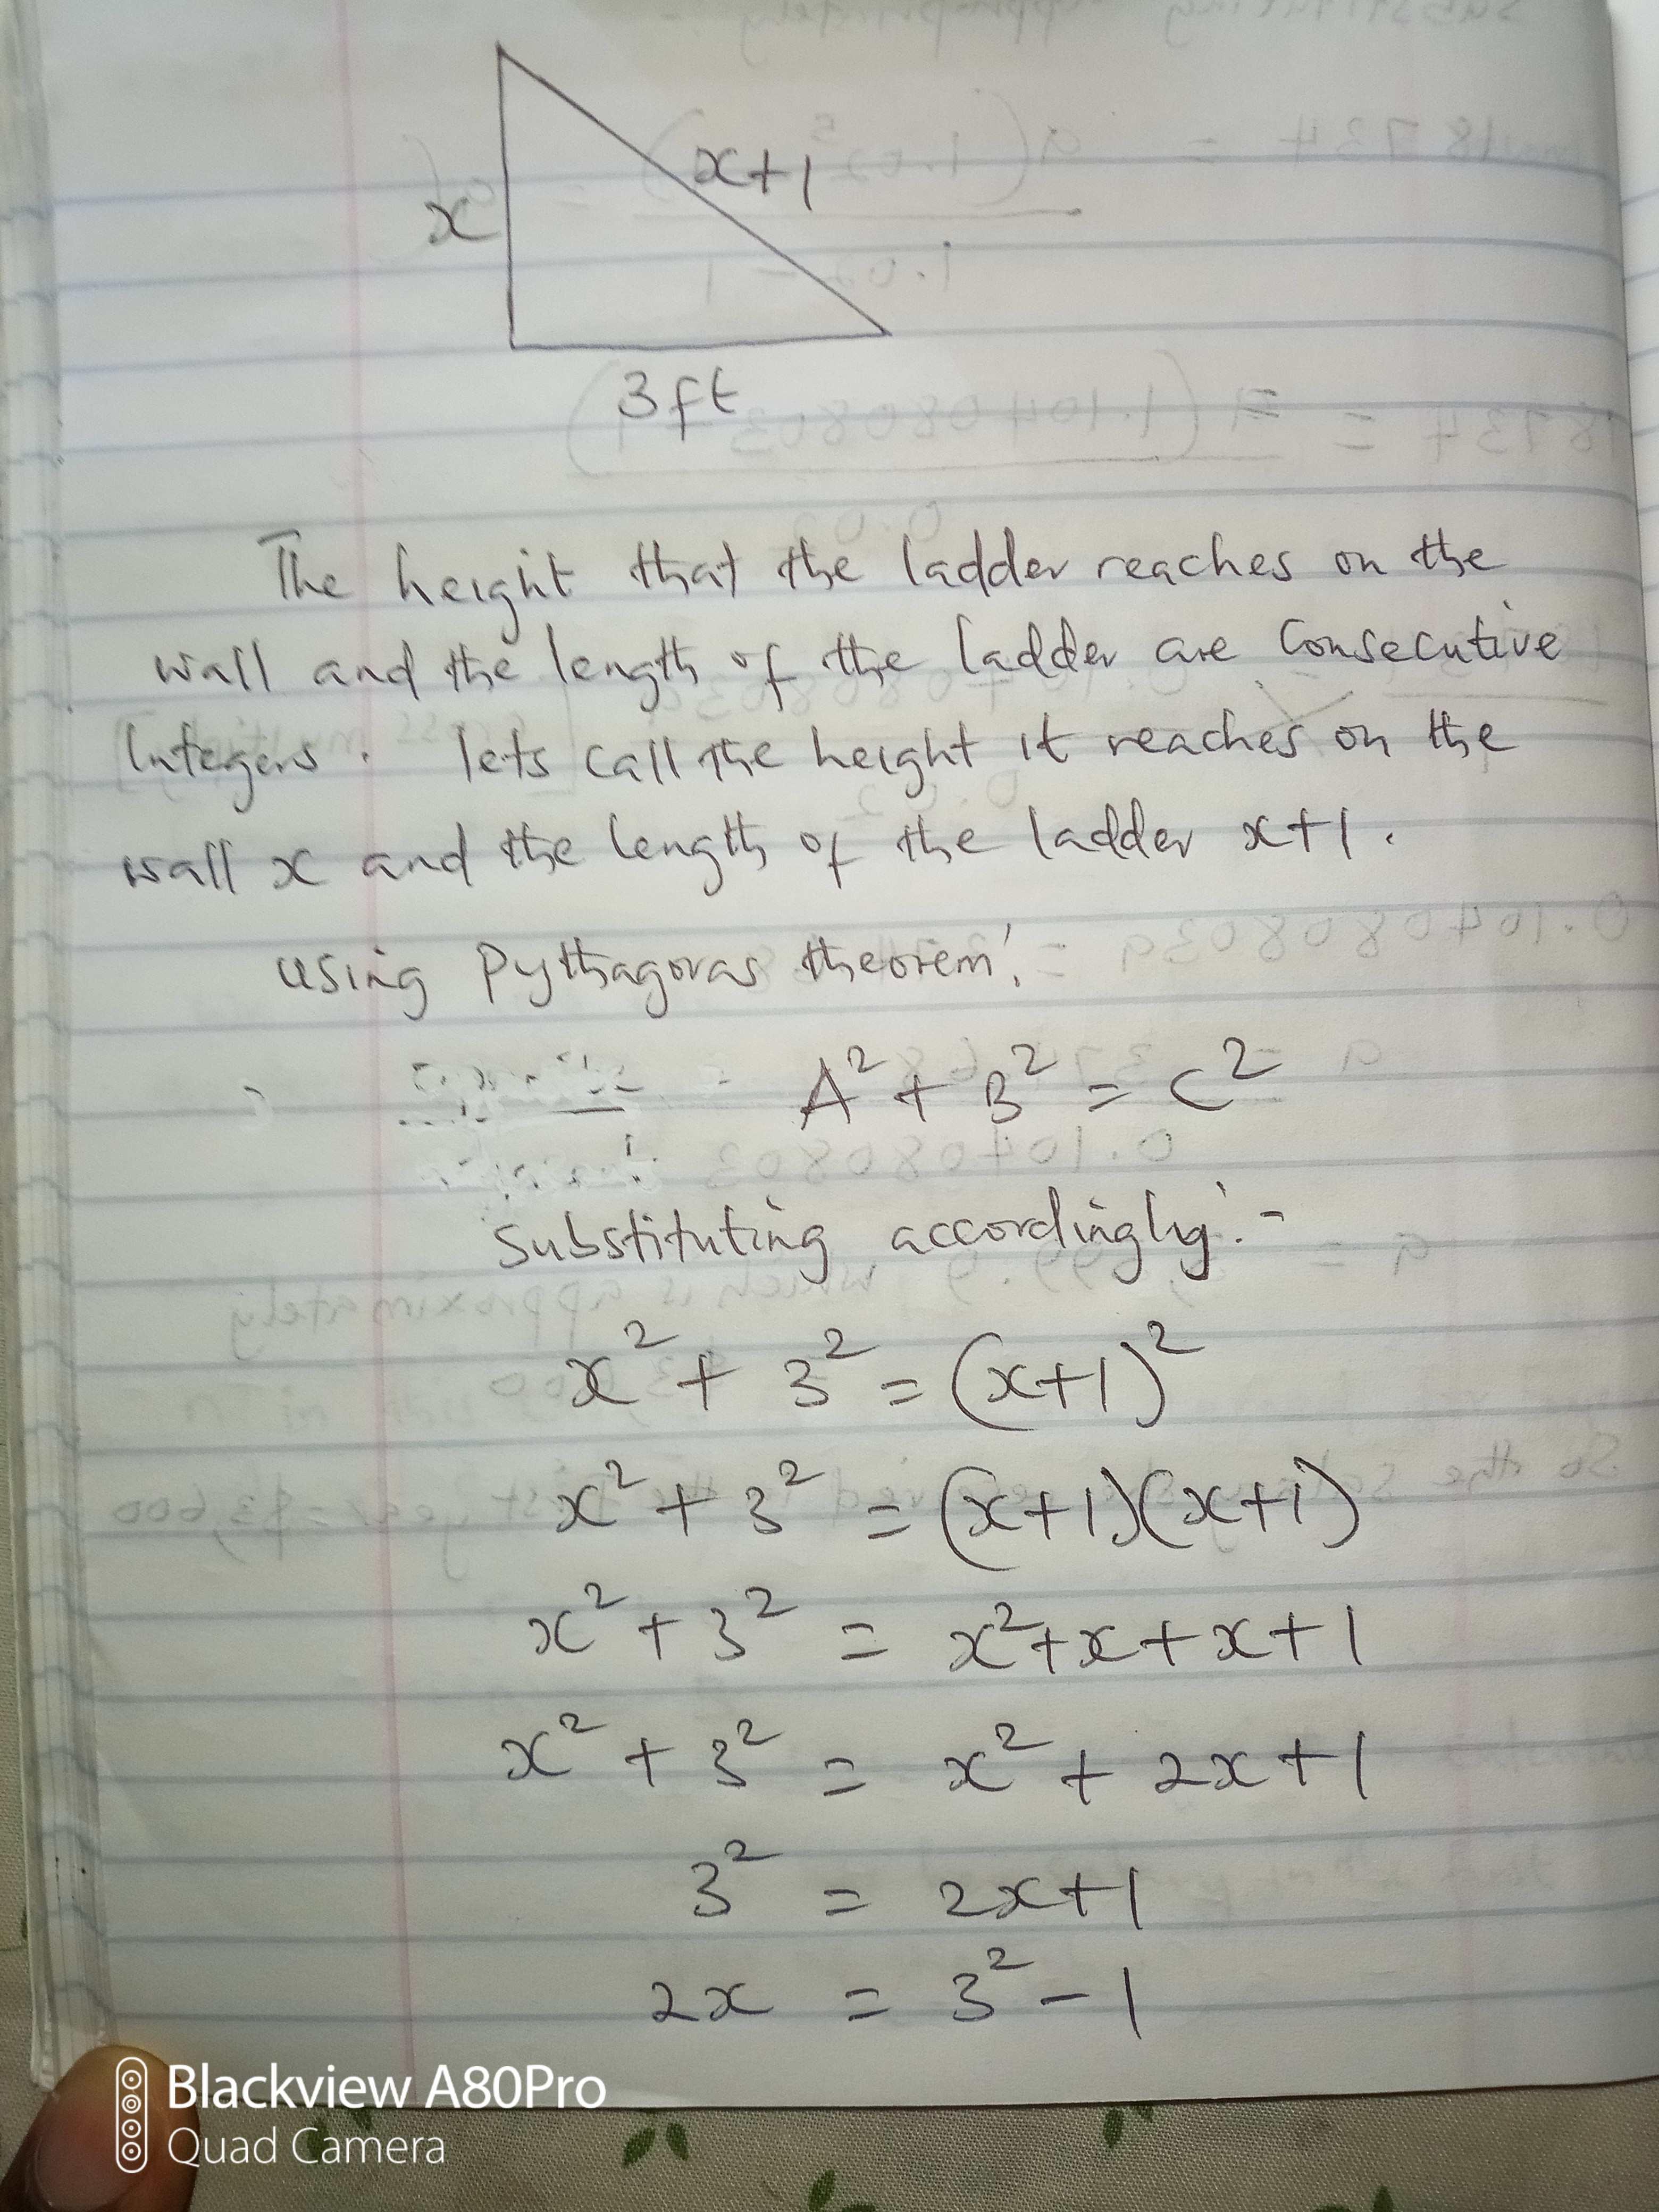 x
x+1
3ft
The height that the ladder reaches on the
wall and the length of the ladder are Consecutive
Integers. lets call the height it reaches on the
wall x and the length of the ladder x+1.
using Pythagoras theorem:
A² + B² = C²
Substituting accordingly:-
x² + 3² = (x+1)²
x² + 3² = (x+1)(x+1)
x² + 3² = x²+x+x+1
x² + 3² = x² + 2x+1
3² = 2x+1
2x = 3² - 1
Blackview A80Pro
Quad Camera